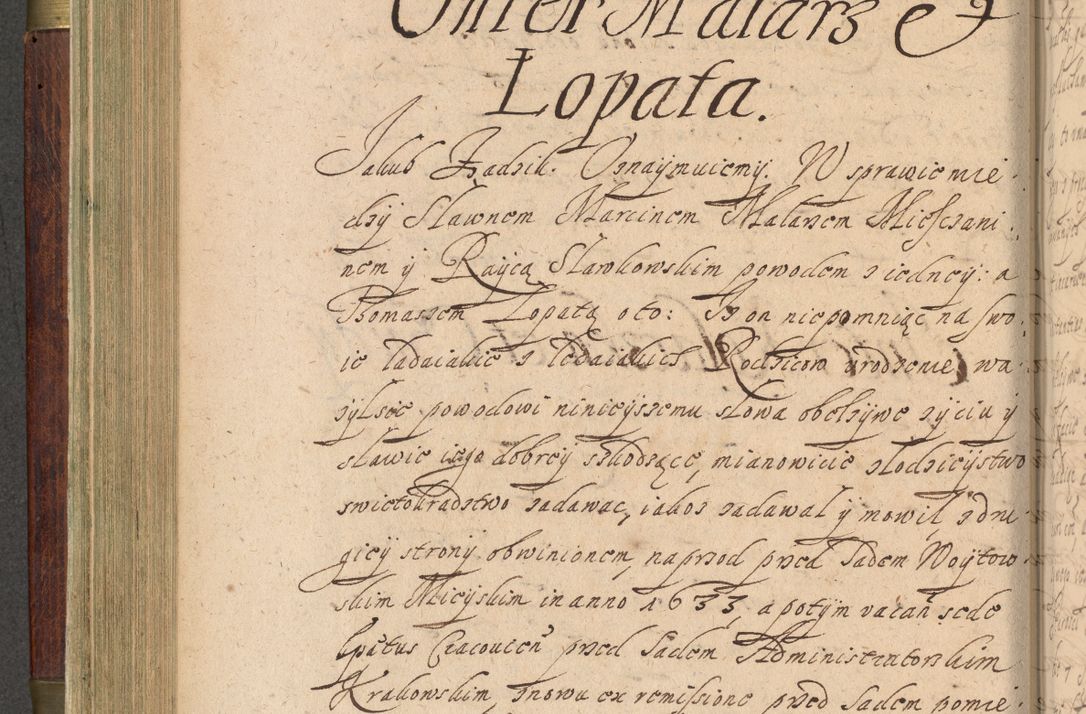 Inter Malarz et
Łopata.
Jakub Zadzik. Oznaymuiemy. W sprawie mie
dzy Sławnem Marcinem Malarzem Miesczani
nem y Raycą Sławkowskim powodem z iedney: a
Thomaszem Łopatą oto: Iż on niepomniąc na swo
ie ladaiakie z ledaiakich Rodzicow urodzenie wa
zył sie powodowi ninieyszemu słowa obelzywe zyciu y
sławie iego dobrey szkodzące, mianowicie złodzieystwo
swietokradztwo zadawac, iakos zadawal y mowił z dru
giey strony obwinionem, naprzod przed Sadem Woytow
skim Mieyskim in anno 1633, a potym vacan sede
Epatus Cracovien przed Sadem Administratorskim
Krakowskim, znowu ex remissione przed Sadem pomie